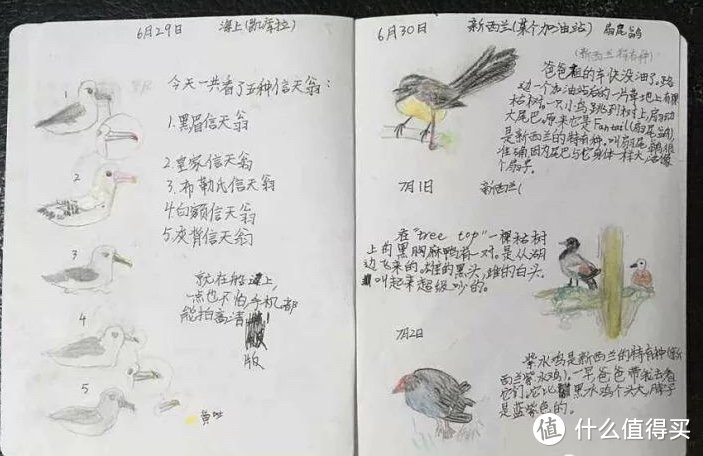 6月29日 海上(凯库拉)
今天一共看了五种信天翁:
1.黑眉信天翁
2.皇家信天翁
3.布勒氏信天翁
4.白额信天翁
5.灰背信天翁
就在船上,
一点也不怕,手机都
能拍高清
版
1
2
3
4
5
黄
6月30日 新西兰(某个加油站) 扇尾鹟
(新西兰特有种)
爸爸的车快没油了,路
边一个加油站后的一片草地上有棵
枯树,一只小鸟跳到树上,扇动
大尾巴。原来它是Fantail(扇尾鹟)
是新西兰的特有种。叫扇尾鹟很
准确,因为尾巴与它身体一样大,还像
个扇子。
7月1日 新西兰(
在"tree top"一棵枯树
上的黑胸麻鸭有一对。是从湖
边飞来的。雄的黑头,雌的白头。
叫起来超级吵的。
7月2日
紫水鸡是新西兰的特有种(新
西兰紫水鸡),一早爸爸带我去看
它们,它比黑水鸡个头大,脖子
是蓝紫色的。
值 什么值得买